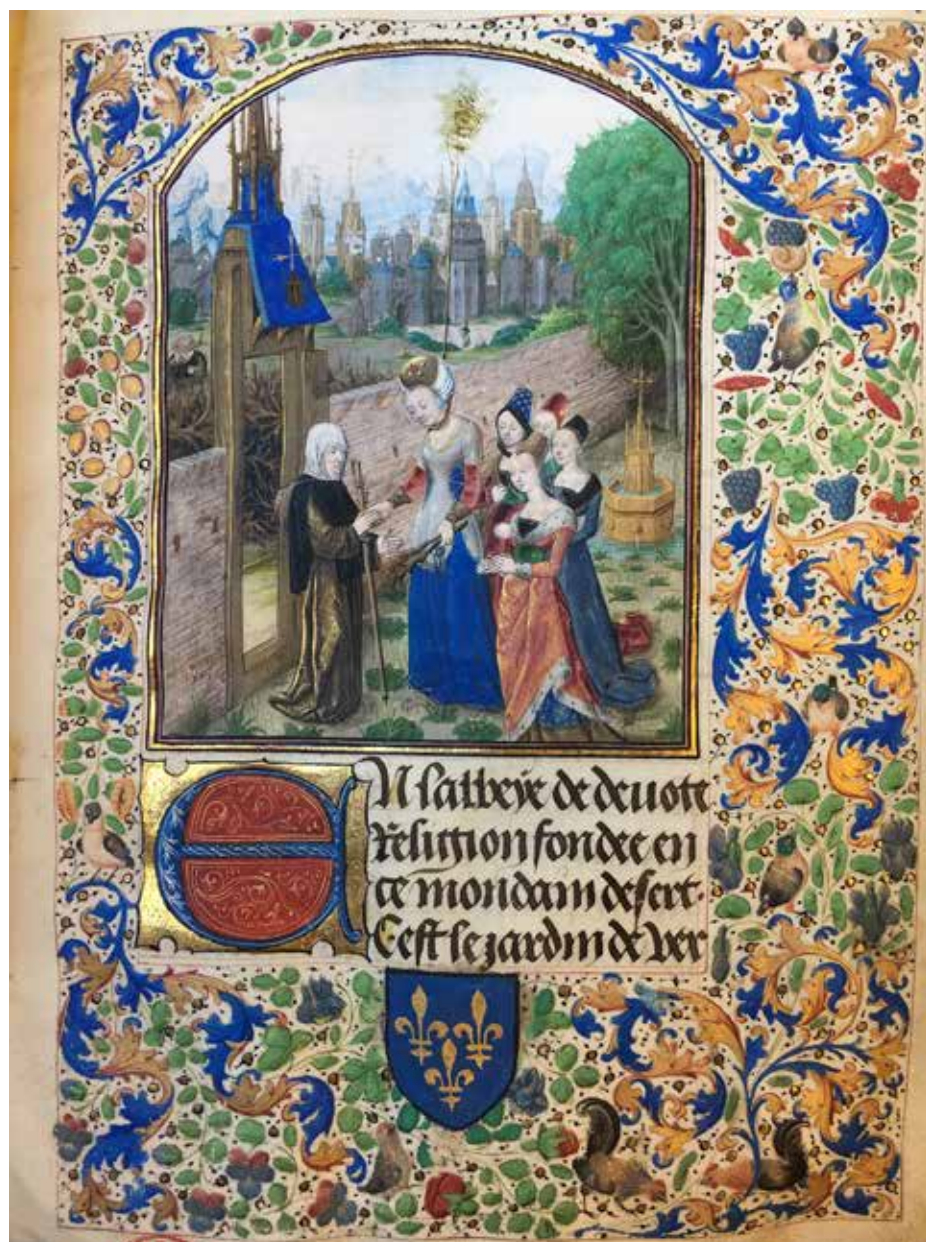 EN labbeye de deuote
Religion fondee en
ce mondain desert.
Cest le jardin de ver